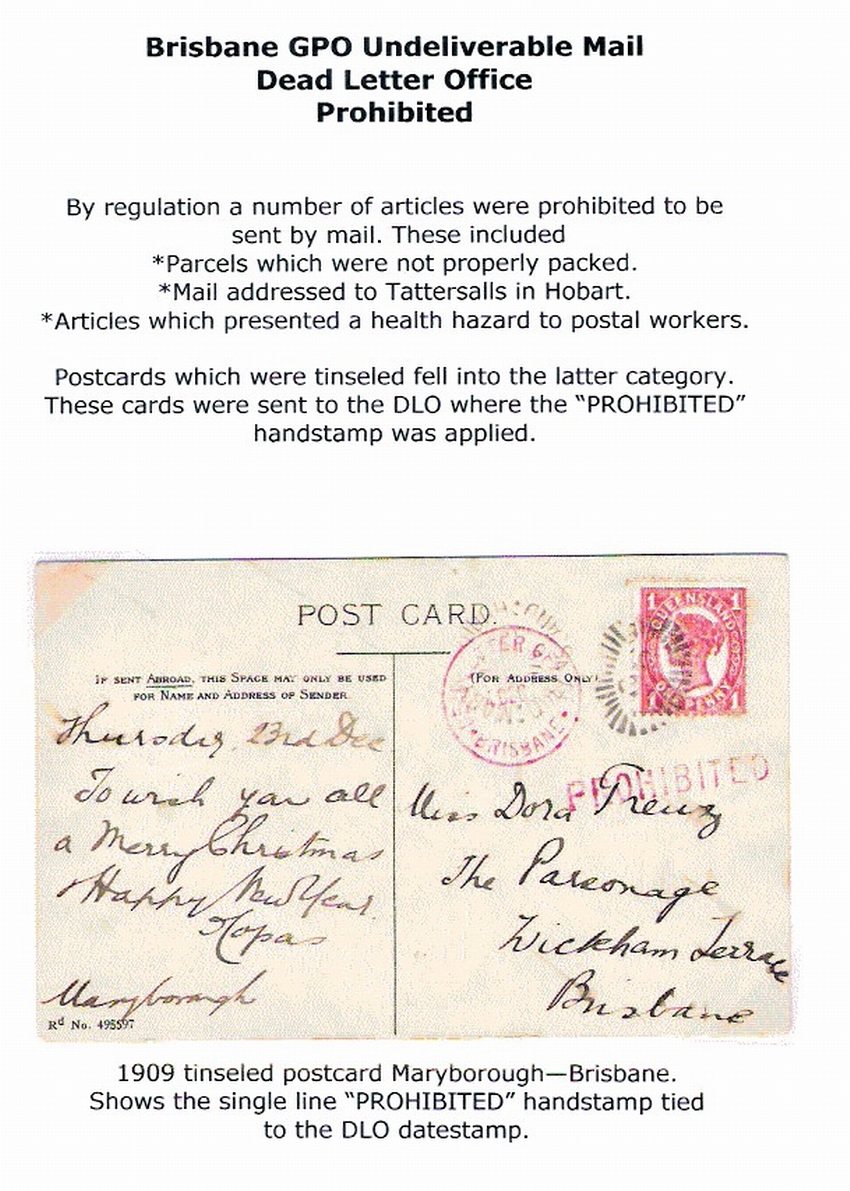 Brisbane GPO Undeliverable Mail
Dead Letter Office
Prohibited
By regulation a number of articles were prohibited to be
sent by mail. These included
*Parcels which were not properly packed.
*Mail addressed to Tattersalls in Hobart.
*Articles which presented a health hazard to postal workers.
Postcards which were tinseled fell into the latter category.
These cards were sent to the DLO where the “PROHIBITED”
handstamp was applied.
POST CARD.
IF SENT ABROAD, THIS SPACE MAY ONLY BE USED
FOR NAME AND ADDRESS OF SENDER
Thursday 23rd Dec
To wish you all
a Merry Christmas
Happy New Year.
Maryborough
Rd No. 495597
(FOR ADDRESS ONLY)
BRISBANE
1 QUEENSLAND 1
1 ONE PENNY 1
PROHIBITED
Miss Dora
The Parsonage
Wickham Terrace
Brisbane
1909 tinseled postcard Maryborough—Brisbane.
Shows the single line “PROHIBITED” handstamp tied
to the DLO datestamp.